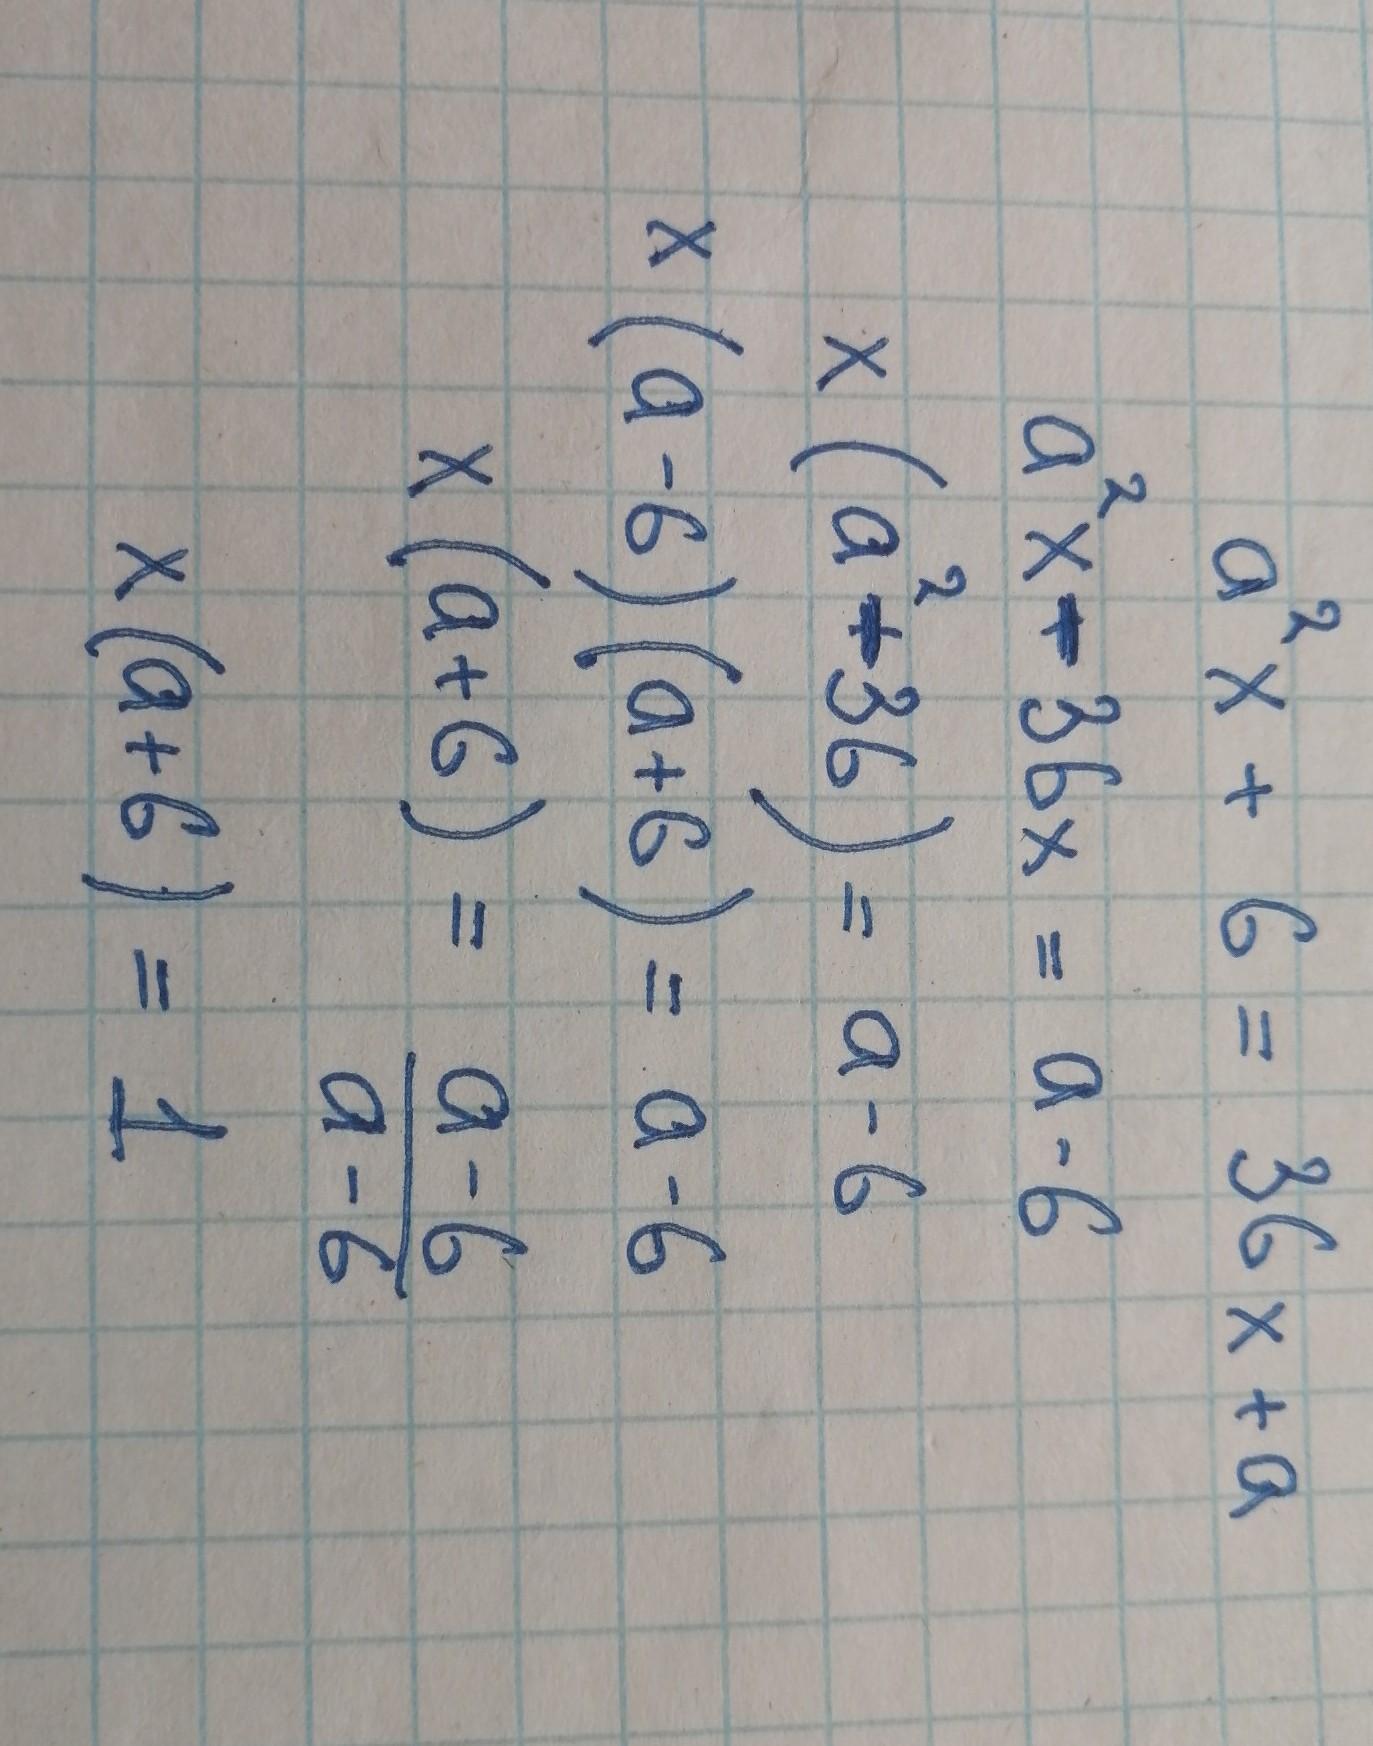 a²x + 6 = 36x + a
a²x - 36x = a - 6
x(a² - 36) = a - 6
x(a - 6)(a + 6) = a - 6
x(a + 6) = \frac{a - 6}{a - 6}
x(a + 6) = 1